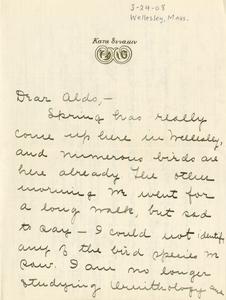 3-24-08
Wellesley, Mass.
Dear Aldo,-
Spring has really
come up here in Wellesley,
and numerous birds are
here already. The other
morning we went for
a long walk, but sad
to say - I could not identify
any of the bird species we
saw. I am no longer
studying Ornithology